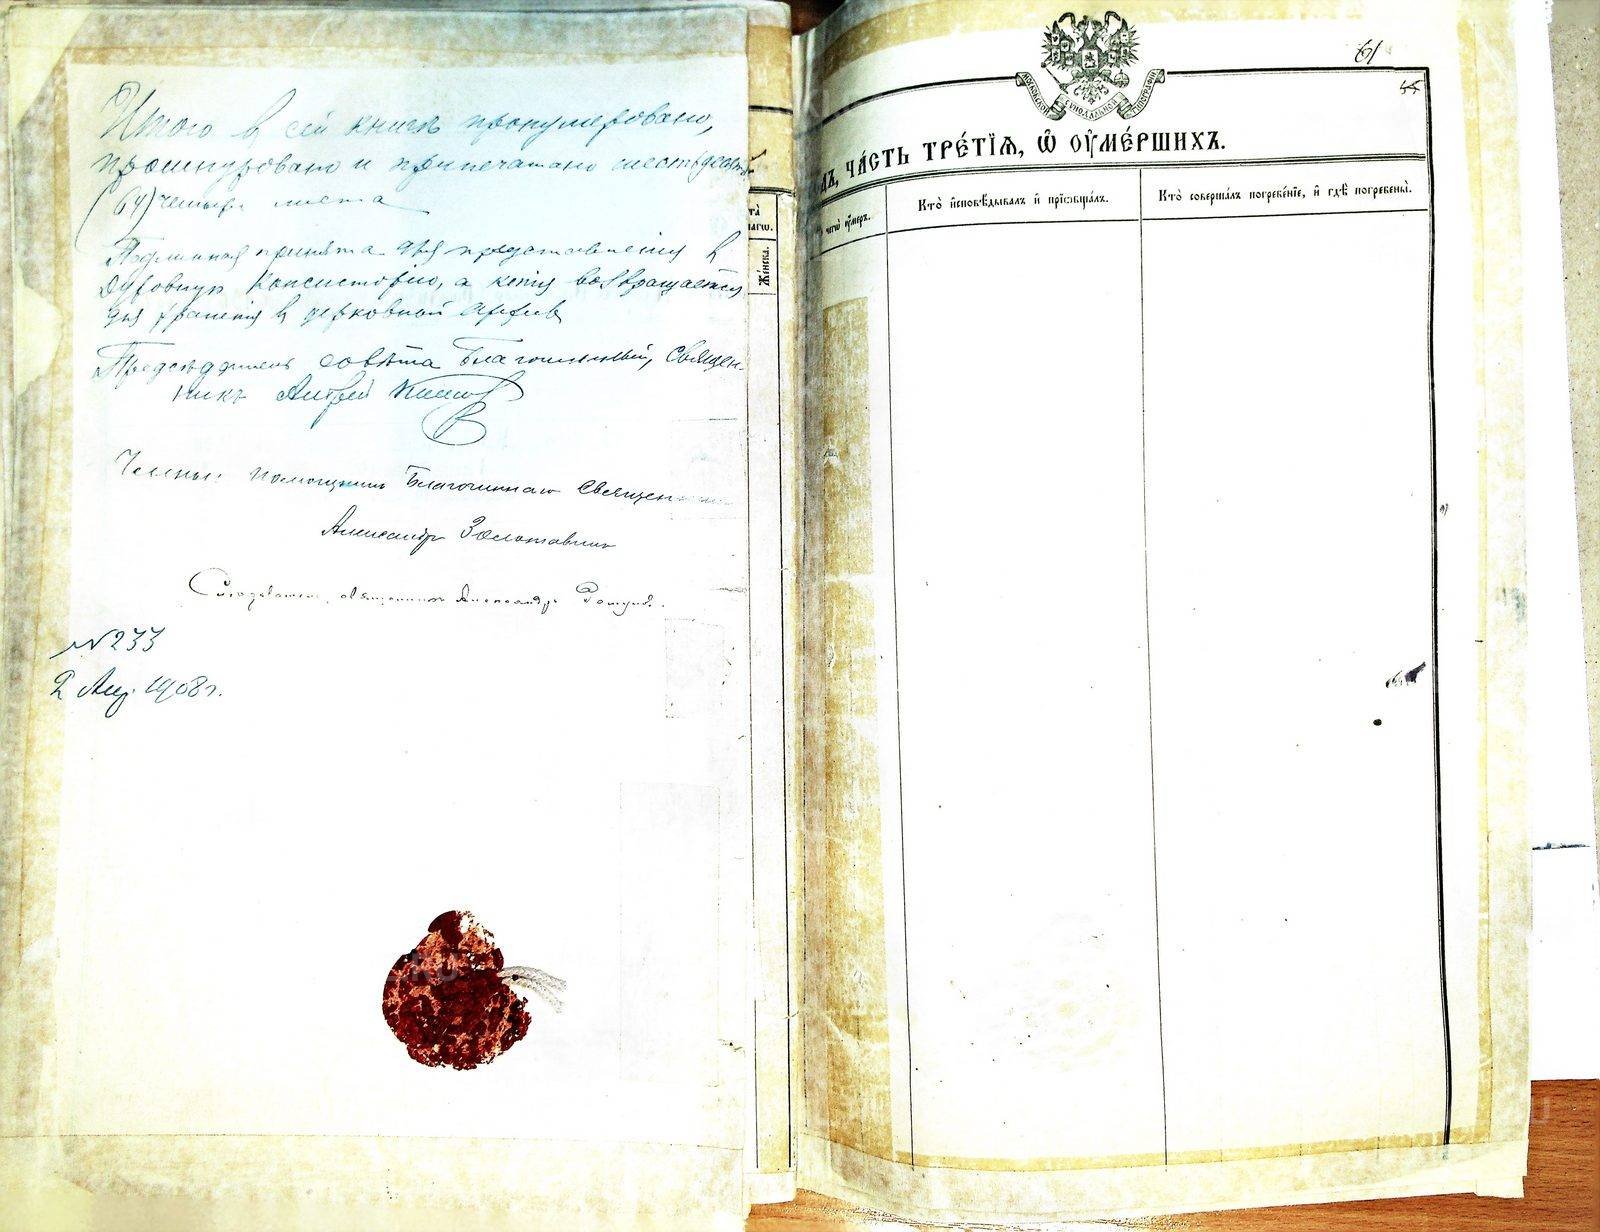 Итого в сей книгѣ пронумеровано,
прошнуровано и припечатано шестьдесятъ
(64) четыре листа
Подлинная принята для представленія в
Духовную Консисторію, а копія возвращается
для храненія в церковной архивъ
Предсѣдатель совѣта Благочинный, Священ-
никъ Андрей
Члены: Помощникъ Благочиннаго Священникъ
Александръ Золотавинъ
священникъ Александръ
№ 233
2 1908 г.
та
Же́нска.
61
МОСКОВСКОЙ СѴНОДАЛЬНОЙ ТИПОГРАФІИ
ЧА́СТЬ ТРЕ́ТІѦ, Ѽ ОУ҆МЕ́РШИХЪ.
чегѡ̀ оу҆́меръ.
Кто̀ и҆сповѣ́дывалъ и҆ прїѡбща́лъ.
Кто̀ соверша́лъ погребе́нїе, и҆ гдѣ̀ погребены̀.